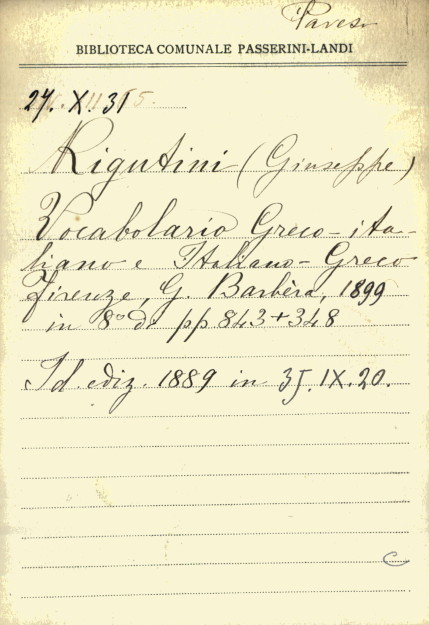 Pavesi
BIBLIOTECA COMUNALE PASSERINI-LANDI
27. X. 31
Rigutini (Giuseppe)
Vocabolario Greco-ita-
liano e Italiano-Greco
Firenze, G. Barbèra, 1899
in 8° di pp 843+348
Id ediz. 1889 in 35. IX. 20.
C